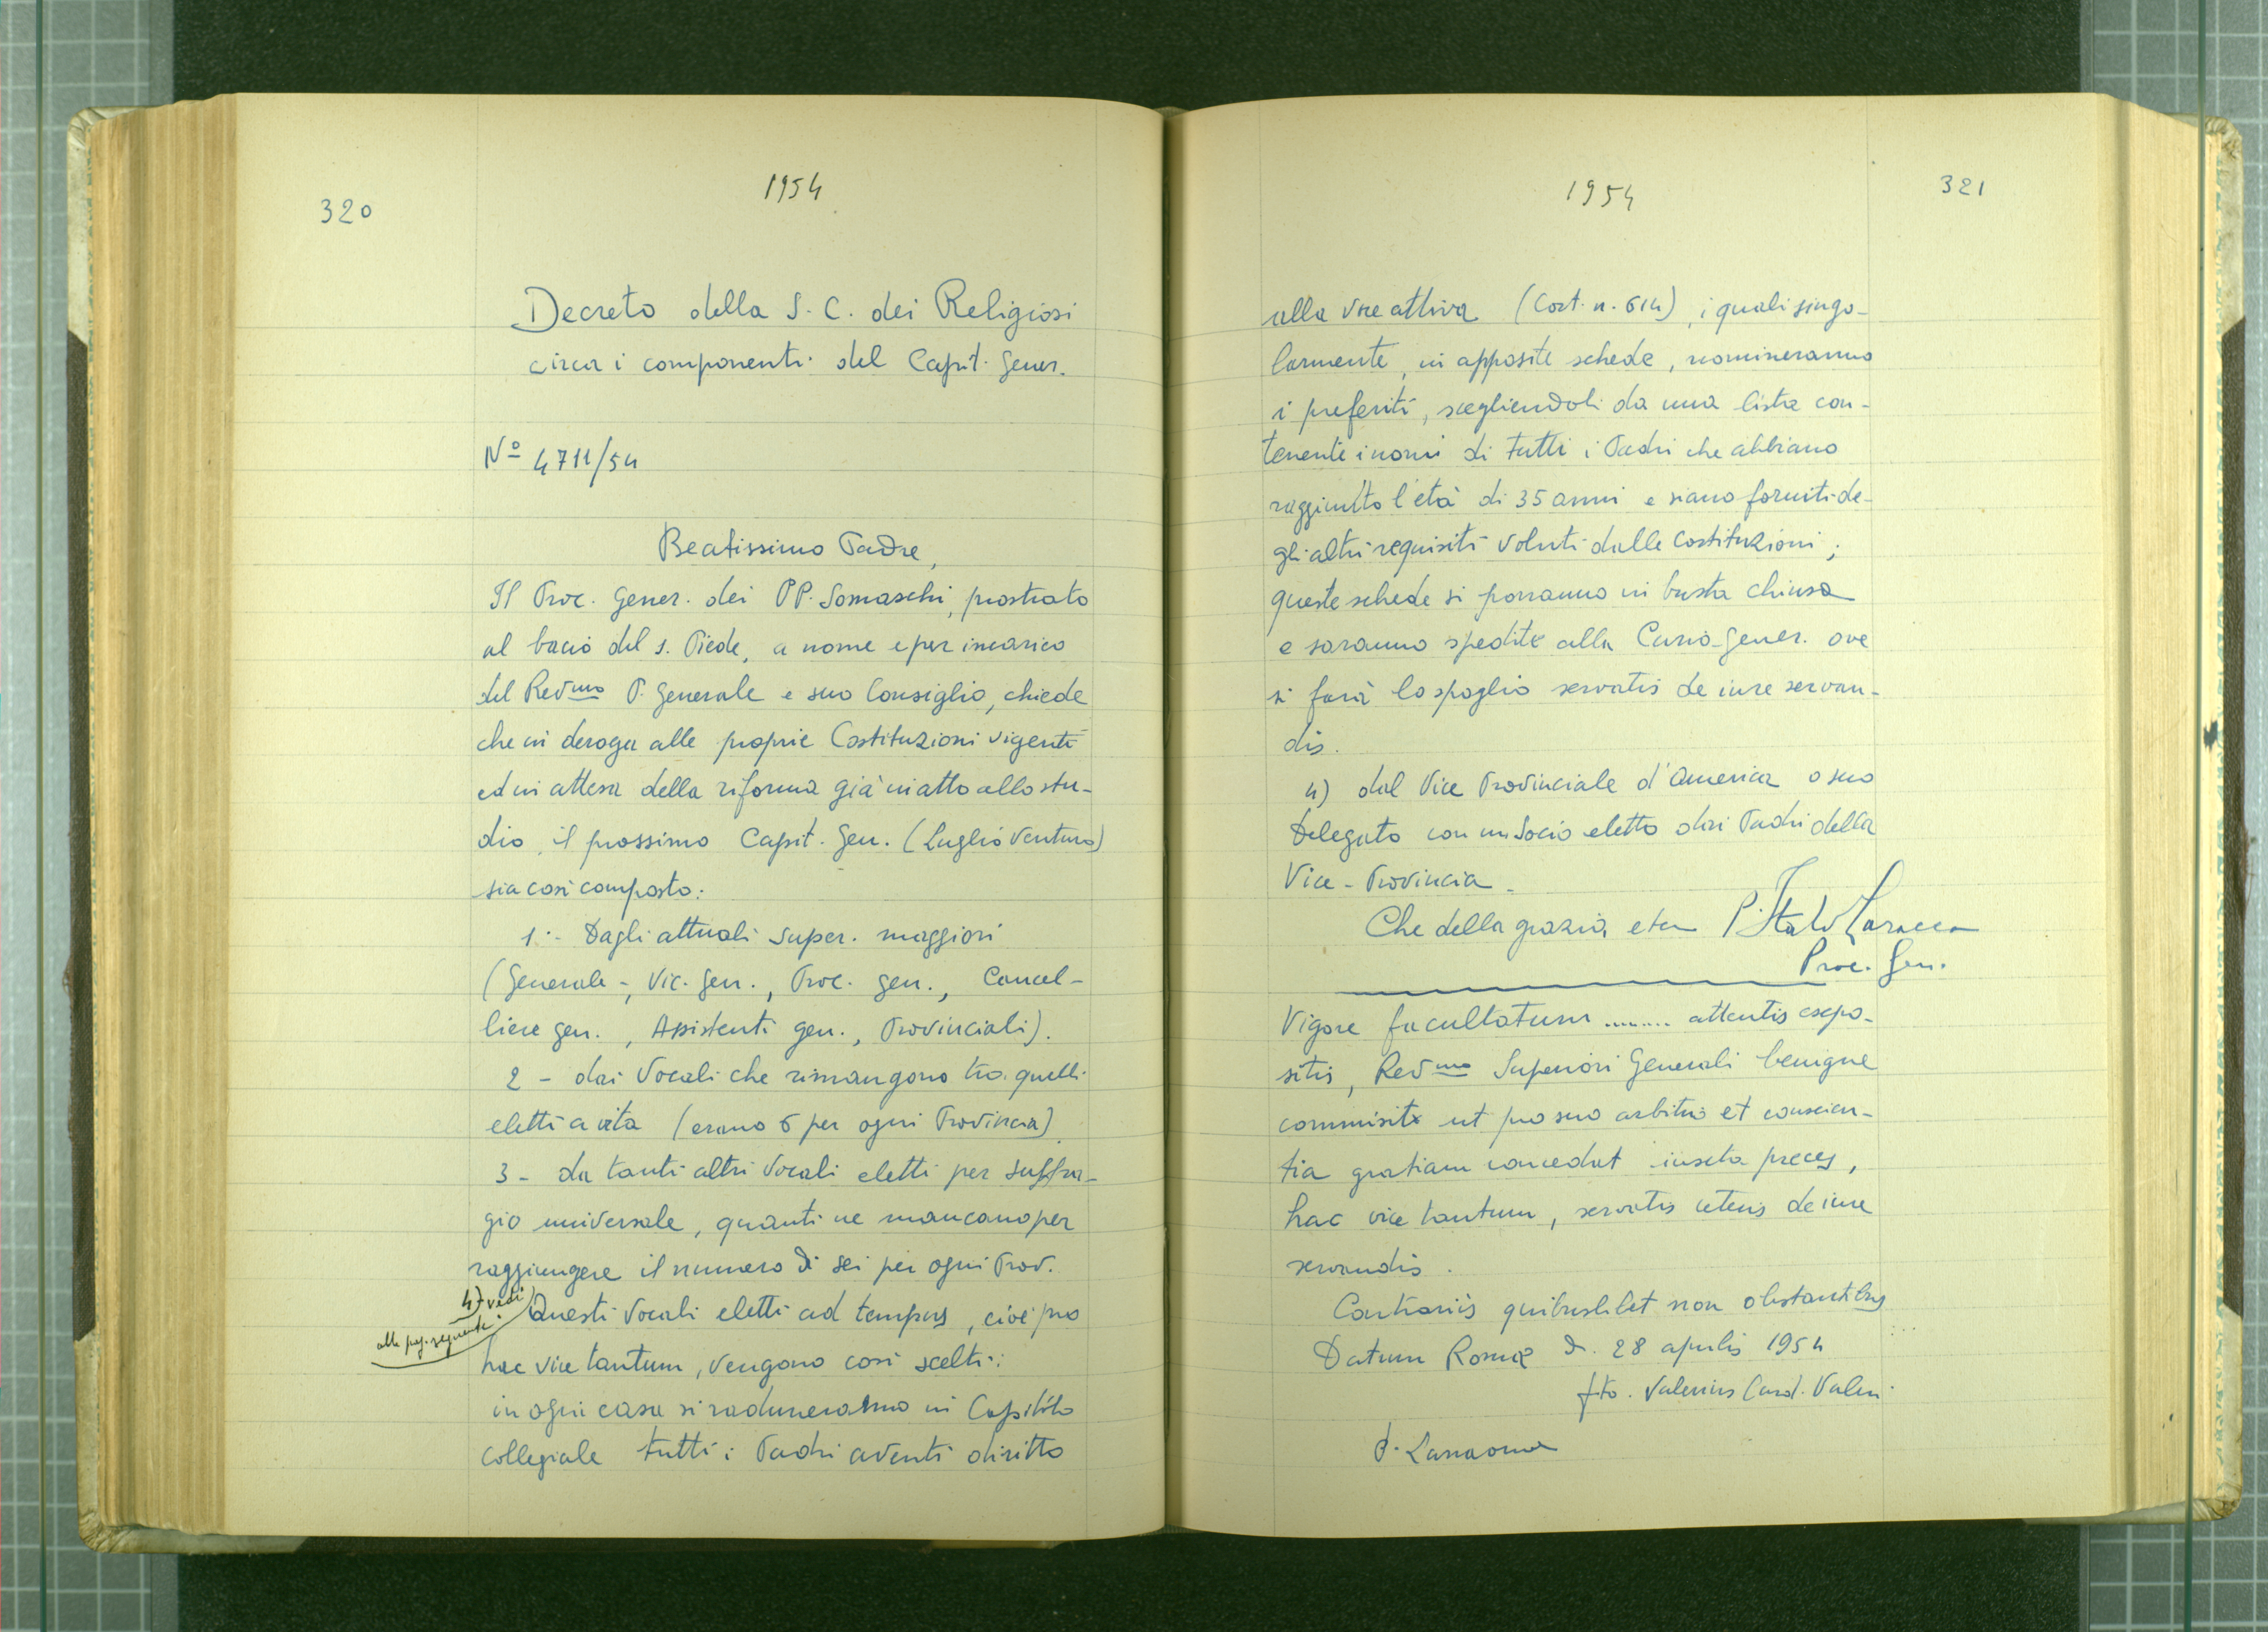 320
1954
Decreto della S. C. dei Religiosi
circa i componenti del Capit. Gener.
Nº 4711/54
Beatissimo Padre,
Il Proc. Gener. dei PP. Somaschi, prostrato
al bacio del s. Piede, a nome e per incarico
del Revmo P. Generale e suo Consiglio, chiede
che in deroga alle proprie Costituzioni vigenti
ed in attesa della riforma già in atto allo stu-
dio, il prossimo Capit. Gen. (Luglio venturo)
sia così composto:
1.- Dagli attuali super. maggiori
(Generale -, Vic. gen., Proc. gen., Cancel-
liere gen., Assistenti gen., Provinciali).
2 - dai Vocali che rimangono tra quelli
eletti a vita (erano 6 per ogni Provincia)
3 - da tanti altri Vocali eletti per suffra-
gio universale, quanti ne mancano per
raggiungere il numero di sei per ogni Prov.
4) vedi
alla pag. seguente.
Questi Vocali eletti ad tempus, cioè pro
hac vice tantum, vengono così scelti:
in ogni casa si raduneranno in Capitolo
collegiale tutti i Padri aventi diritto
1954
321
alla voce attiva (Cost. n. 614), i quali singo-
larmente, in apposite schede, nomineranno
i preferiti, scegliendoli da una lista con-
tenente i nomi di tutti i Padri che abbiano
raggiunto l'età di 35 anni e siano forniti de-
gli altri requisiti voluti dalle Costituzioni;
queste schede si porranno in busta chiusa
e saranno spedite alla Curia Gener. ove
si farà lo spoglio servatis de iure servan-
dis.
4) dal Vice Provinciale d'America o suo
Delegato con un Socio eletto dai Padri della
Vice-Provincia.
Che della grazia etc P. Italo Laracca
Proc. Gen.
Vigore facultatum ........ attentis expo-
sitis, Revmo Superiori Generali benigne
commisit ut pro suo arbitrio et conscien-
tia gratiam concedat iuxta preces,
hac vice tantum, servatis ceteris de iure
servandis.
Contrariis quibuslibet non obstantibus
Datum Romæ d. 28 aprilis 1954
fto. Valerius Card. Valeri